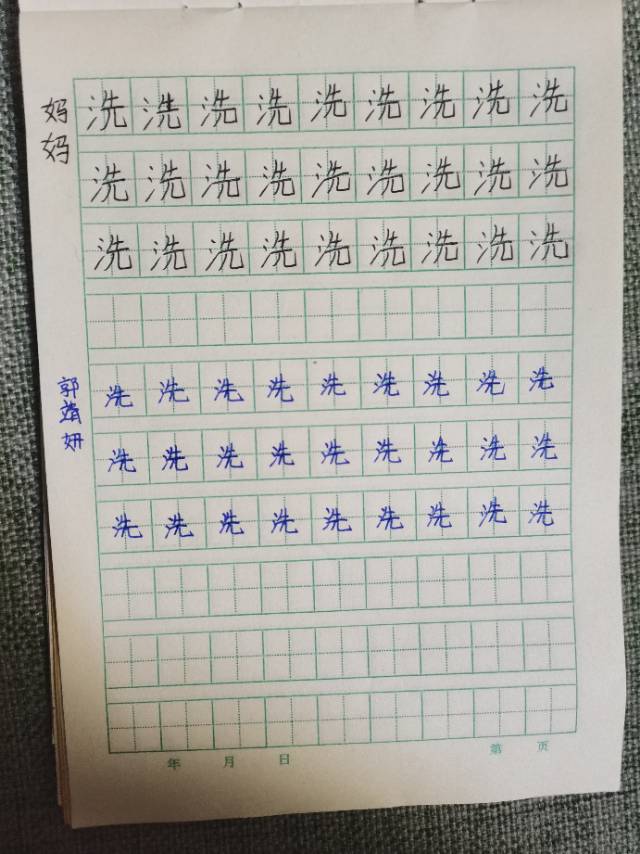 妈妈
洗洗洗洗洗洗洗洗洗
洗洗洗洗洗洗洗洗洗
洗洗洗洗洗洗洗洗洗
郭靖妍
洗洗洗洗洗洗洗洗洗
洗洗洗洗洗洗洗洗洗
洗洗洗洗洗洗洗洗洗
年 月 日 第 页